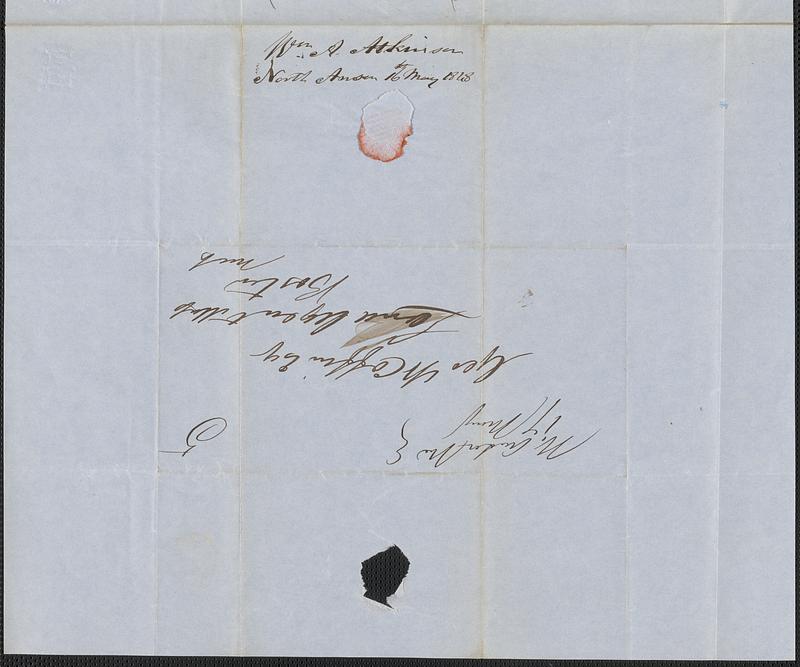 Wm A Atkinson
North Anson 16th May 1848
N. Anson Me
17 May
5
Geo W Coffin Esq
Land Agent Mass
Boston
Mass